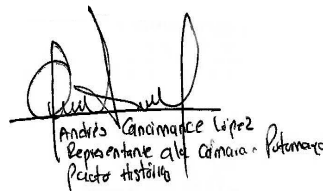 Andrés Cancimance López
Representante a la Cámara - Putumayo
Pacto Histórico